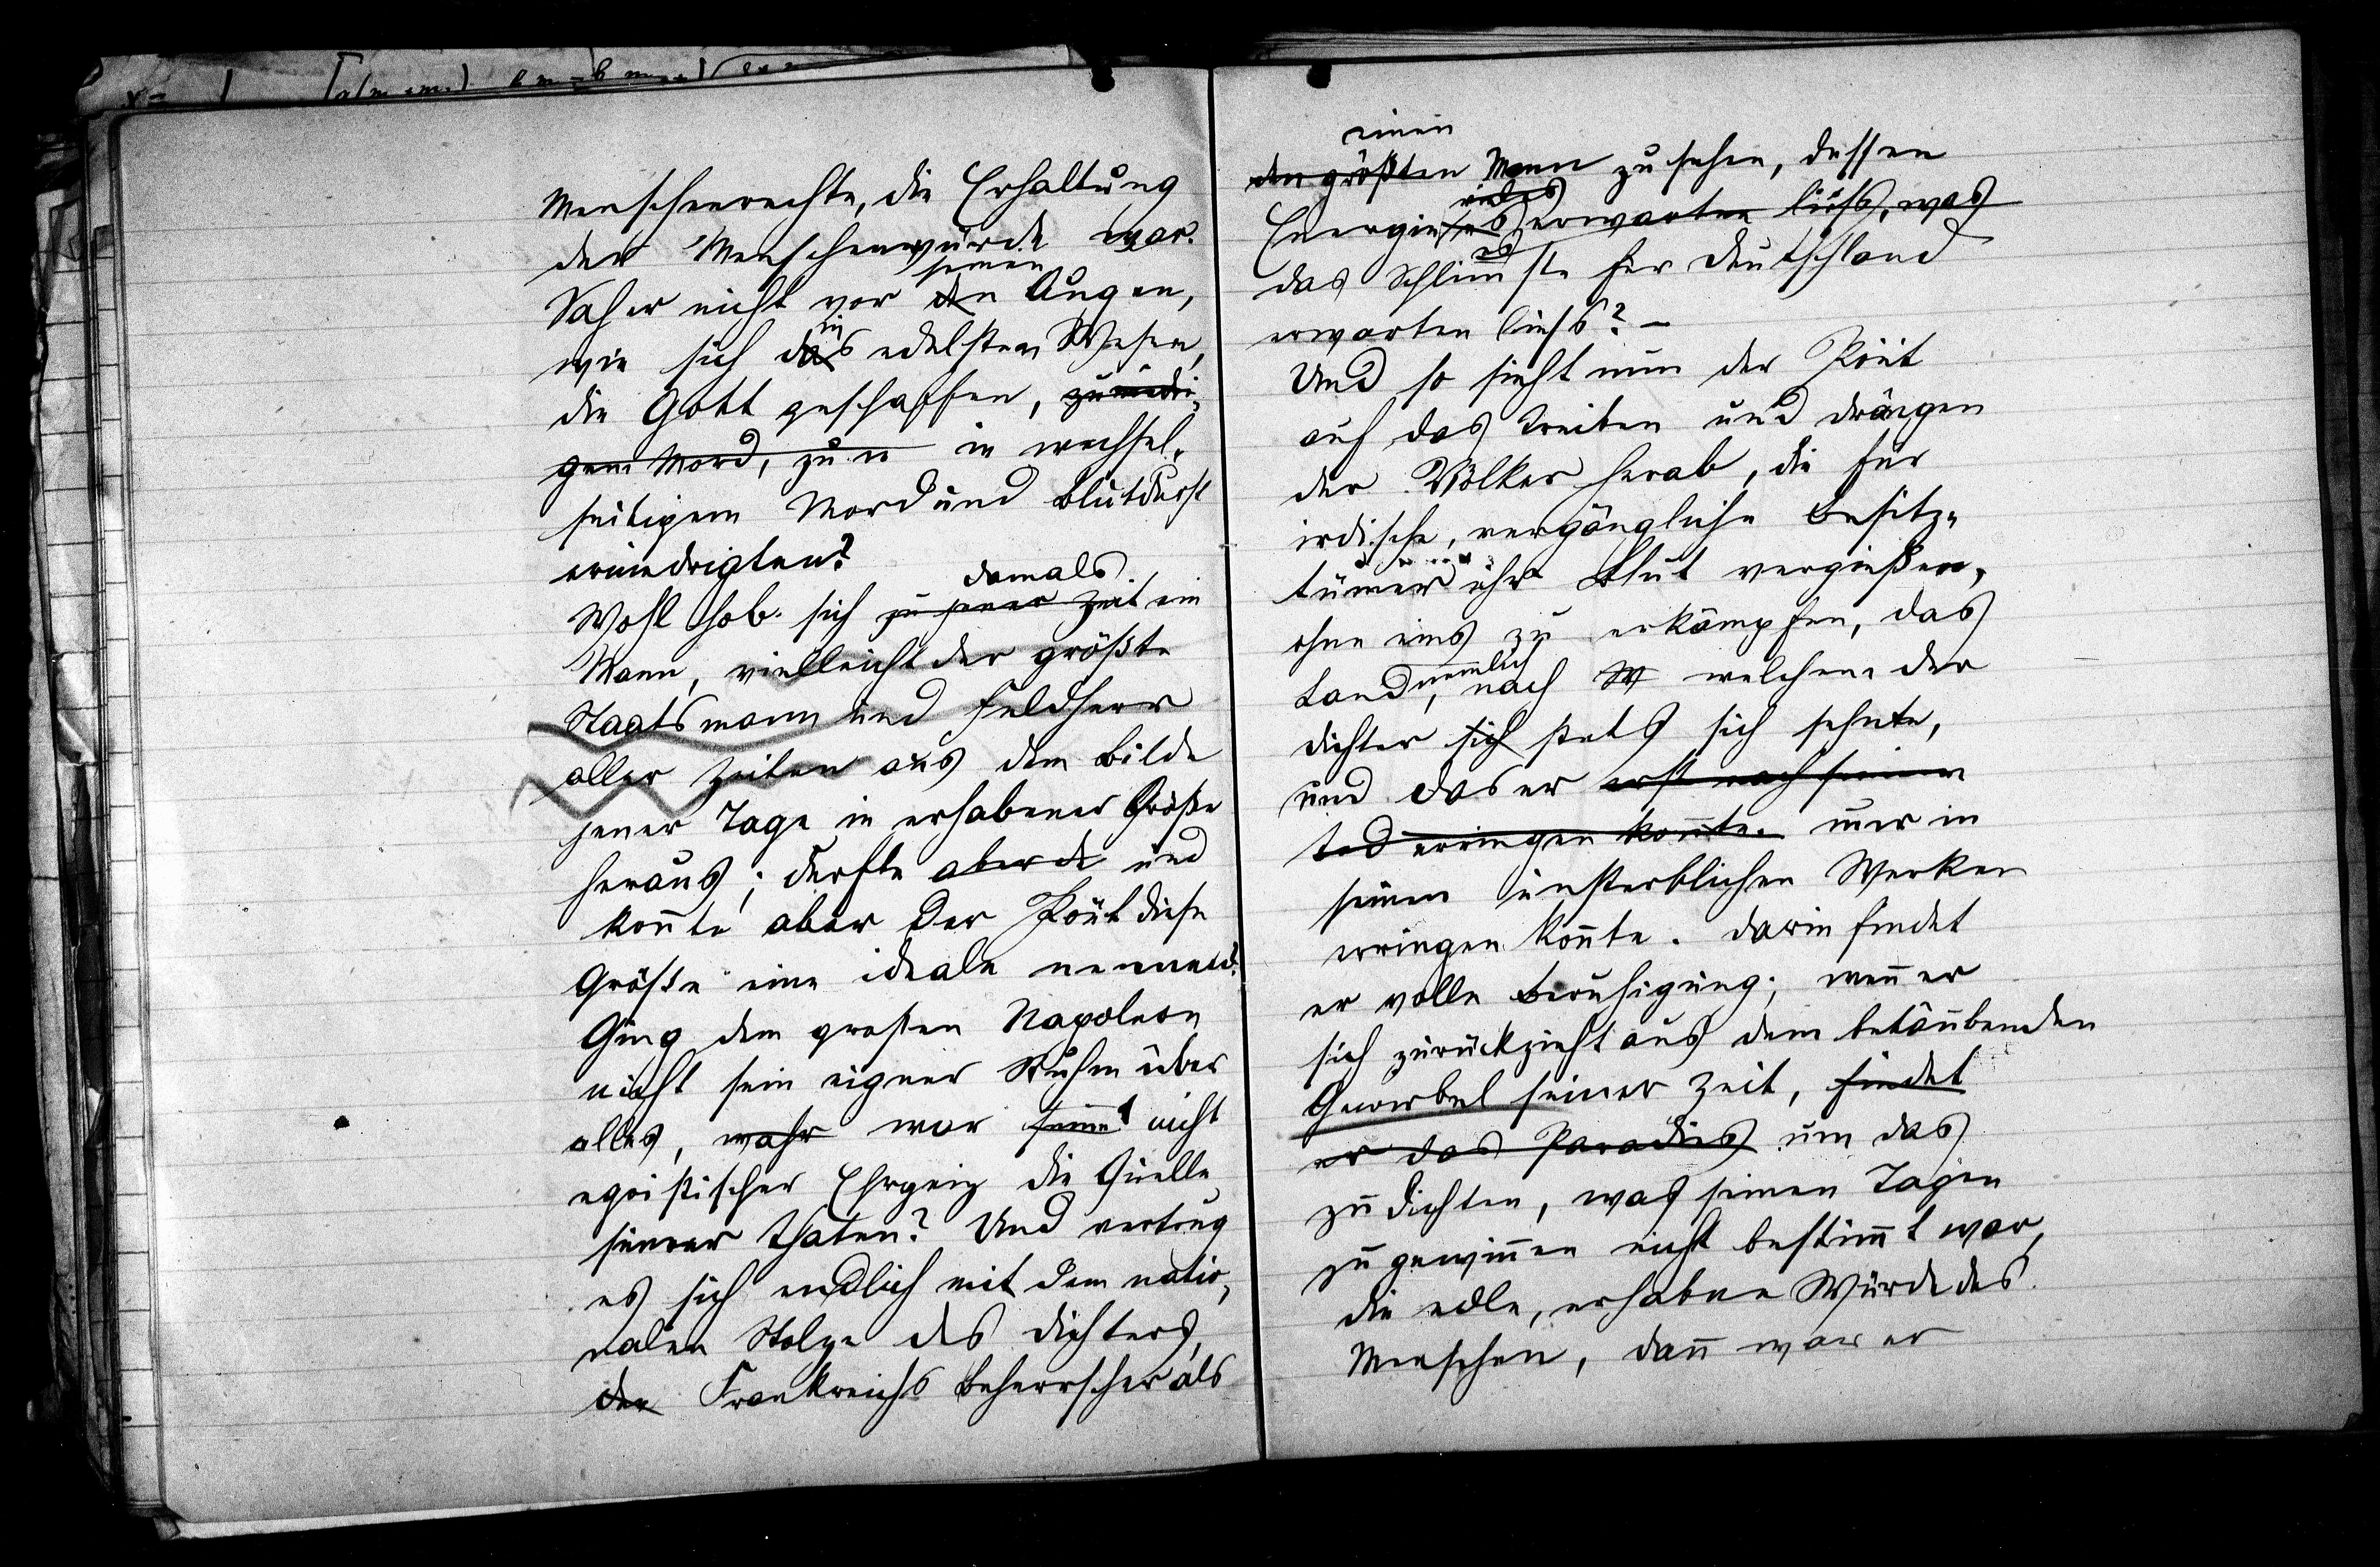 Menschenrechte, die Erhaltung
der Menschenwürde war.
seinen
Sah er nicht vor den Augen,
wie sich das edelsten Wesen,
die Gott geschaffen,
gem Mord, zu er in wechsel-
seitigem Mord und Blutdurst
erniedrigten?
damals
Wohl hob sich zu jener Zeit ein
Mann, vielleicht der größte
Staatsmann und Feldherr
aller Zeiten aus dem Bilde
jener Tage in erhabener Größe
heraus; durfte aber d und
kon̄te aber der Poët diese
Größe eine ideale nennen?
Ging dem großen Napoleon
nicht sein eigner Ruhm über
alles, wahr war nicht
egoistischer Ehrgeiz die Quelle
seiner Thaten? Und vertrug
es sich endlich mit dem natio-
nalen Stolze des Dichters,
den Frankreichs Beherrscher als
einen
den größten Mann zu sehen, dessen
vieles
Energie es erwarten ließ, was
das Schlim̄ste für Deutschland
erwarten ließ? –
Und so sieht nun der Poët
auf das Treiben und Drängen
der Völker herab, die für
irdische, vergängliche Besitz-
tümer ihr Blut vergießen,
ohne eins zu erkämpfen, das
nemlich
Land, nach W welchem der
Dichter sich stets sich sehnte,
und das er erst nach seinem
Tod erringen kon̄te. nur in
seinen unsterblichen Werken
erringen kon̄te. Darin findet
er volle Beruhigung; wen̄ er
sich zurückzieht aus dem betäubenden
Gewirbel seiner Zeit, findet
er das Paradies um das
zu dichten, was seinen Tagen
zu gewin̄en nicht bestim̄t war,
die edle, erhabne Würde des
Menschen, dan̄ war er